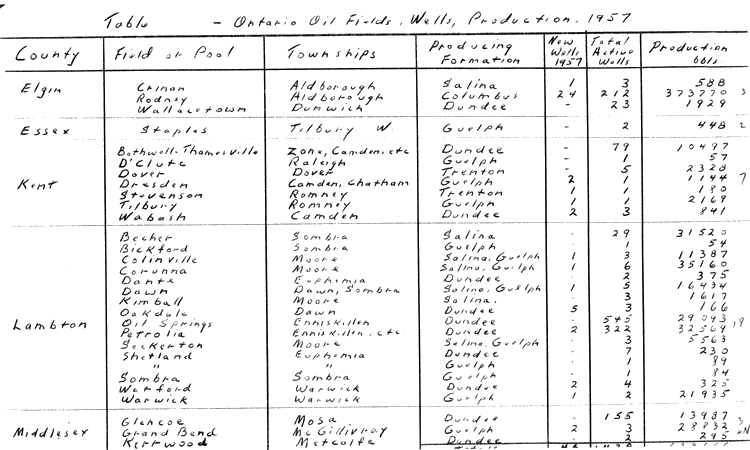 Table - Ontario Oil Fields, Wells, Production, 1957.
County Field or Pool Townships Producing Formation New Wells 1957 Total Active Wells Production bbls.
Elgin Crinan Aldborough Salina 1 3 588
Rodney Aldborough Columbus 24 212 373770 3
Wallacetown Dunwich Dundee - 23 1929
Essex Staples Tilbury W. Guelph - 2 448 2
Bothwell-Thamesville Zone, Camden, etc Dundee - 79 10497
D'Clute Raleigh Guelph - 1 57
Dover Dover Trenton - 5 2328
Kent Dresden Camden, Chatham Guelph 2 1 1144 7
Stevenson Romney Trenton 1 1 180
Tilbury Romney Guelph 1 1 2169
Wabash Camden Dundee 2 3 841
Becher Sombra Salina - 29 31520
Bickford Sombra Guelph - 1 54
Colinville Moore Salina, Guelph 1 3 11387
Corunna Moore Salina, Guelph 1 6 35160
Dante Euphemia Dundee - 2 375
Dawn Dawn, Sombra Salina, Guelph 1 5 16434
Kimball Moore Salina. - 3 1617
Oakdale Dawn Dundee 5 3 166
Lambton Oil Springs Enniskillen Dundee - 545 29093
Petrolia Enniskillen, etc Dundee 2 322 32569
Seckerton Moore Salina, Guelph - 3 5563
Shetland Euphemia Dundee - 7 230
" " Guelph - 1 89
Sombra Sombra Guelph - 1 84
Watford Warwick Dundee 2 4 325
Warwick Warwick Guelph 1 2 21935
Glencoe Mosa Dundee - 155 13987
Middlesex Grand Bend McGillivray Guelph 2 3 28832
Kerrwood Metcalfe Dundee - 2 295